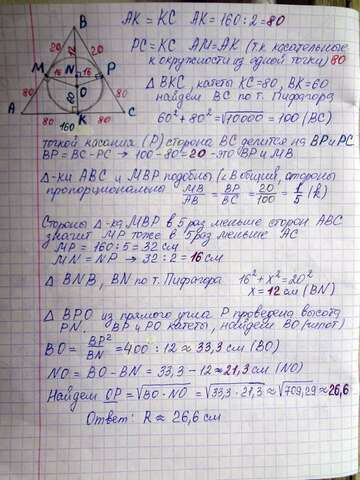 AK = KC   AK = 160 : 2 = 80
PC = KC   AM = AK (т.к. касательные
к окружности из одной точки) 80
Δ BKC, катеты KC = 80, BK = 60
найдем BC по т. Пифагора
60² + 80² = √10000 = 100 (BC)
точкой касания (P) сторона BC делится на BP и PC
BP = BC - PC → 100 - 80 = 20 - это BP и MB
Δ-ки ABC и MBP подобны (∠B общий, стороны
пропорциональны MB/AB = BP/BC = 20/100 = 1/5 (k)
Стороны Δ-ка MBP в 5 раз меньше сторон ABC
значит MP тоже в 5 раз меньше AC
MP = 160 : 5 = 32 см
MN = NP → 32 : 2 = 16 см
Δ BNB, BN по т. Пифагора   16² + x² = 20²
x = 12 см (BN)
Δ BPO из прямого угла P проведена высота
PN. BP и PO катеты, найдем BO (гипот)
BO = BP²/BN = 400 : 12 ≈ 33,3 см (BO)
NO = BO - BN = 33,3 - 12 ≈ 21,3 см (NO)
Найдем OP = √BO · NO = √33,3 · 21,3 ≈ √709,29 ≈ 26,6
Ответ: R ≈ 26,6 см
B
20
20
12
M
N
16
16
P
80
O
60
80
A
80
K
80
C
160